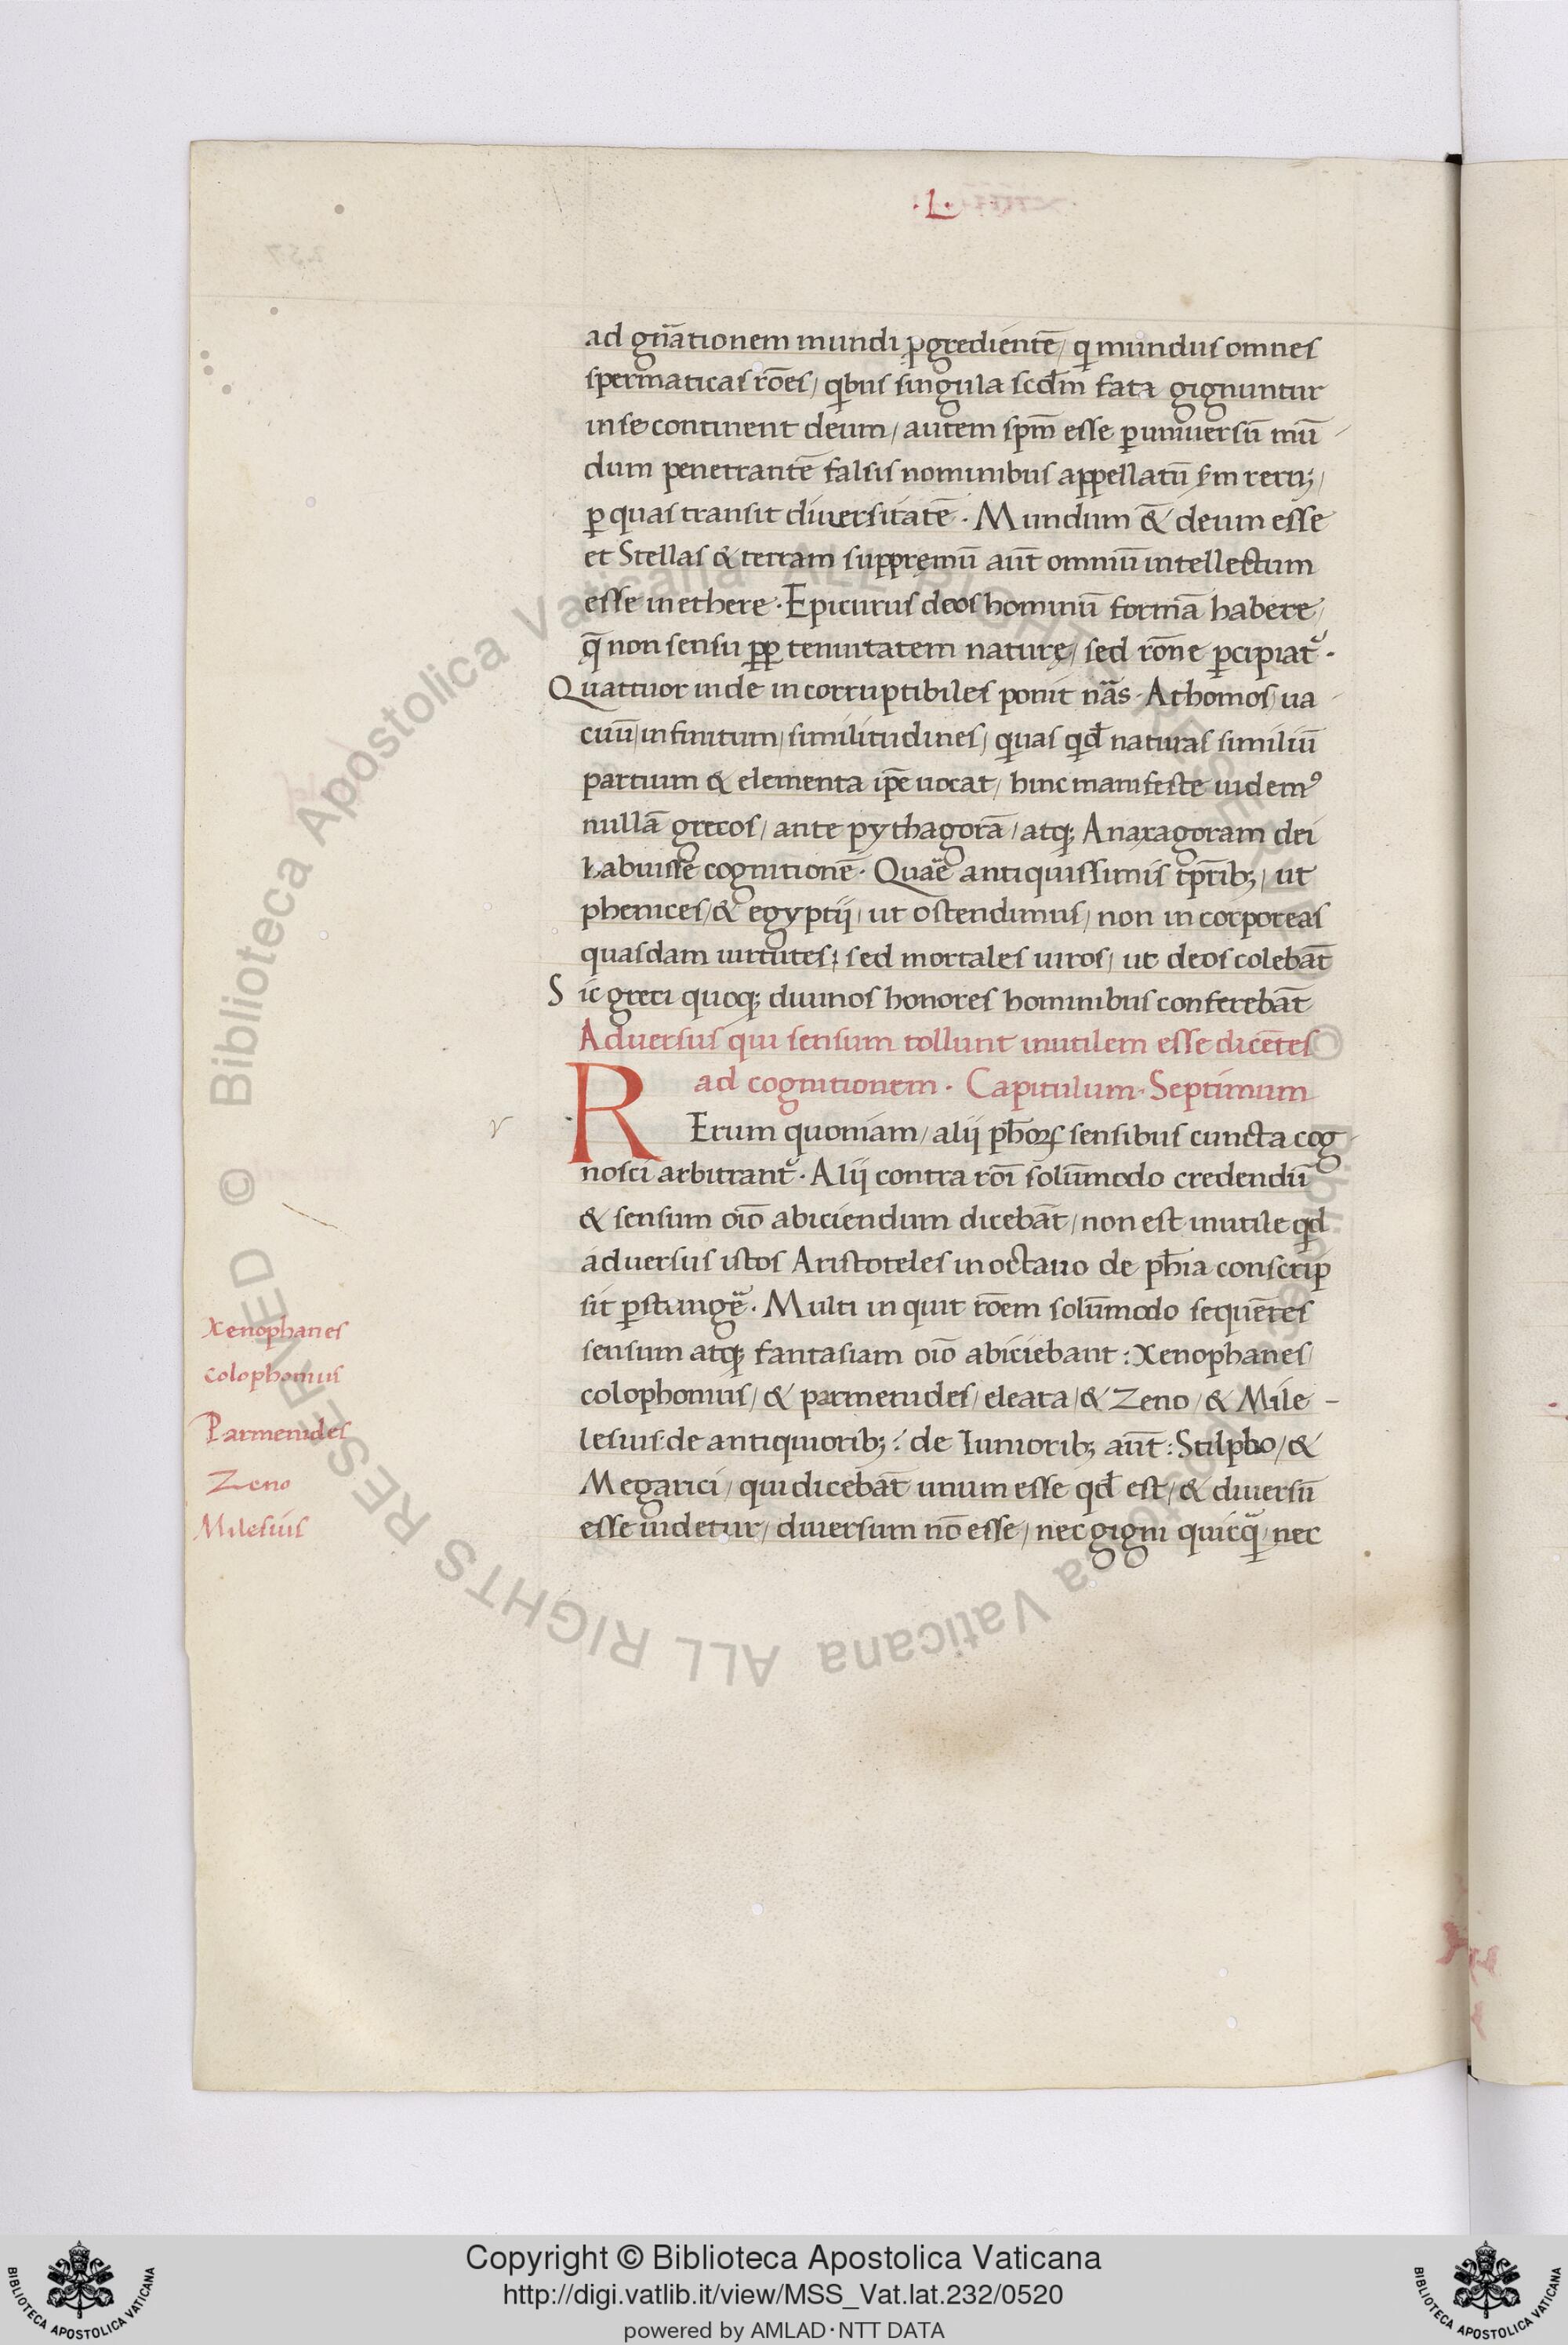 .L.
ad gn̄ationem mundi ꝓgredientē / qi mundus omnes
spermaticas rōes / qibus singula scd̄m fata gignuntur
in se continent deum / autem sp̄m esse ꝑ uniuersū mū
dum penetrantē falsis nominibus appellatū
ꝑ quas transit diuersitatē · Mundum &̄ deum esse
et Stellas & terram suppremū aūt omniū intellectum
esse in ethere · Epicurus deos hominū formā habere /
q̄ non sensu ꝓp tenuitatem naturę / sed rōne ꝑcipiat᷑ ·
Quattuor inde incorruptibiles ponit nās · Athomos / ua
cuū / infinitum / similitudines / quas qid̄ naturas similiū
partium & elementa ip̄e uocat / hinc manifeste uidemꝰ
nullā grecos / ante pythagorā / atq; Anaxagoram dei
habuisse cognitionē · Quāe antiquissimis tp̄rib; / ut
phenices / & egyptij / ut ostendimus / non incorporeas
quasdam uirtutes ; sed mortales uiros / ut deos colebāt
Sic greci quoq; diuinos honores hominibus conferebāt
Aduersus qui sensum tollunt inutilem esse dicētes
ad cognitionem · Capitulum · Septimum
RErum quoniam / alij ph̄oꝝ sensibus cuncta cog
nosci arbitrant᷑ · Alij contra rōi solūmodo credendū
& sensum oīo abiciendum dicebāt / non est inutile qd̄
aduersus istos Aristoteles in octauo de ph̄ia conscrip
sit ꝑstringē · Multi inquit rōem solūmodo sequētes
sensum atq; fantasiam oīo abiciebant : Xenophanes /
colophonius / & parmenides / eleata / & Zeno / & Mile -
lesius · de antiquiorib; : de Iuniorib; aūt : Stilpho / &
Megarici / qui dicebāt unum esse qd̄ est / & diuersū
esse uidetur / diuersum nō esse / nec gigni quicq̄ / nec
Xenophanes
colophonius
Parmenides
Zeno
Milesius
Copyright © Biblioteca Apostolica Vaticana
http://digi.vatlib.it/view/MSS_Vat.lat.232/0520
powered by AMLAD·NTT DATA
BIBLIOTECA APOSTOLICA VATICANA
BIBLIOTECA APOSTOLICA VATICANA
© Biblioteca Apostolica Vaticana ALL RIGHTS RESERVED
© Biblioteca Apostolica Vaticana ALL RIGHTS RESERVED